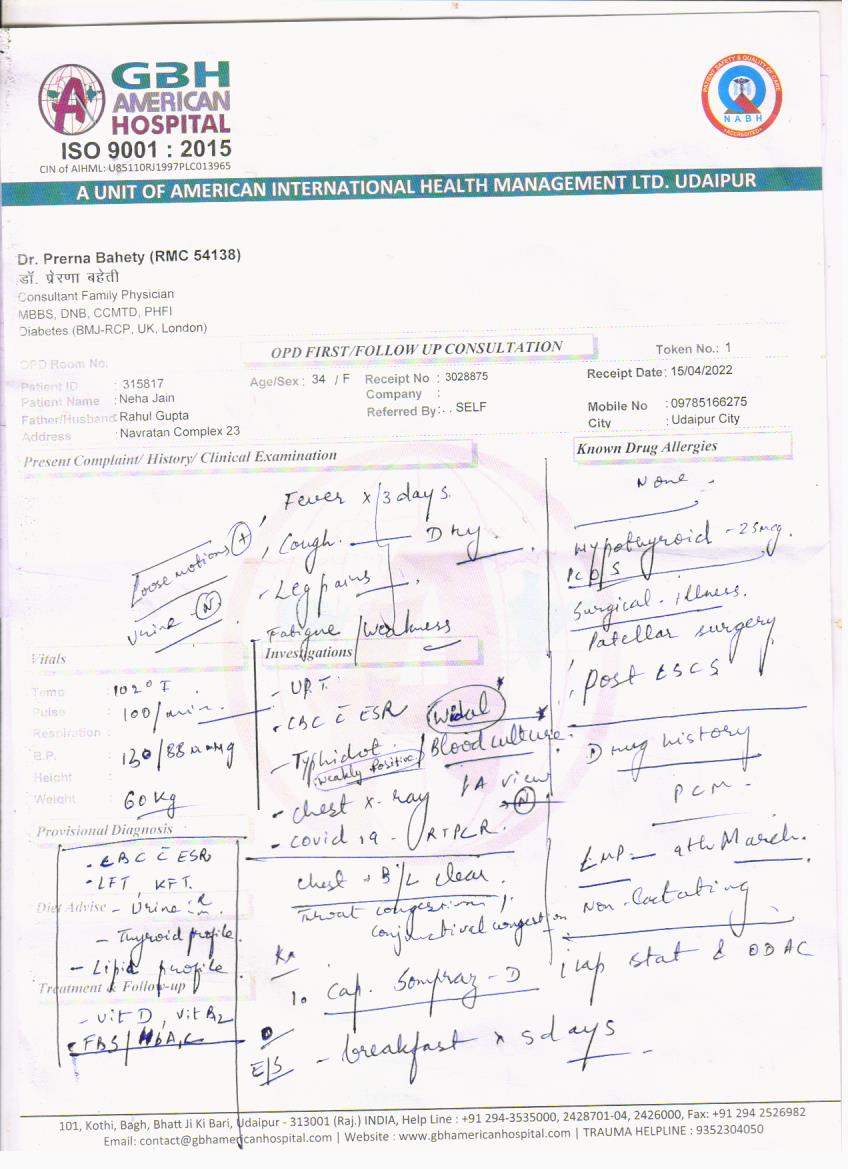 GBH
AMERICAN
HOSPITAL
ISO 9001 : 2015
CIN of AIHML: U85110RJ1997PLC013965
PATIENT SAFETY & QUALITY OF CARE
NABH
ACCREDITED
A UNIT OF AMERICAN INTERNATIONAL HEALTH MANAGEMENT LTD. UDAIPUR
Dr. Prerna Bahety (RMC 54138)
डॉ. प्रेरणा बहेती
Consultant Family Physician
MBBS, DNB, CCMTD, PHFI
Diabetes (BMJ-RCP, UK, London)
OPD FIRST/FOLLOW UP CONSULTATION
Token No.: 1
OPD Room No:
Patient ID : 315817
Age/Sex : 34 / F
Receipt No : 3028875
Receipt Date: 15/04/2022
Patient Name : Neha Jain
Company :
Father/Husband: Rahul Gupta
Referred By: . . SELF
Mobile No : 09785166275
Address : Navratan Complex 23
City : Udaipur City
Present Complaint/ History/ Clinical Examination
Known Drug Allergies
Fever x 3 days.
Cough. — Dry.
Loose motions +
- Leg pains
Urine - N
Fatigue / Weakness
None -
Hypothyroid - 25mcg.
PCOS
Surgical illness.
Patellar surgery
Post LSCS
Drug history
PCM -
LMP - 9th March.
Non-Lactating
Vitals
Temp : 102° F
Pulse : 100/min
Respiration :
B.P. : 130/88 mmHg
Height :
Weight : 60 Kg
Investigations
- UPT.
- CBC c̄ ESR Widal
- Typhidot / Blood culture
weakly positive
- chest x-ray PA view
N
- covid 19 - RTPCR.
Provisional Diagnosis
- CBC c̄ ESR
- LFT, KFT.
Diet Advise
- Urine R/m
- Thyroid profile.
- Lipid profile
Treatment & Follow-up
- Vit D, Vit B12
- FBS / HbA1C
chest → B/L clear
Throat congestion,
conjunctival congestion
Rx
1. Cap. Sompraz-D 1 cap stat & OD AC
E/S - breakfast x 5 days
101, Kothi, Bagh, Bhatt Ji Ki Bari, Udaipur - 313001 (Raj.) INDIA, Help Line : +91 294-3535000, 2428701-04, 2426000, Fax: +91 294 2526982
Email: contact@gbhamericanhospital.com | Website : www.gbhamericanhospital.com | TRAUMA HELPLINE : 9352304050